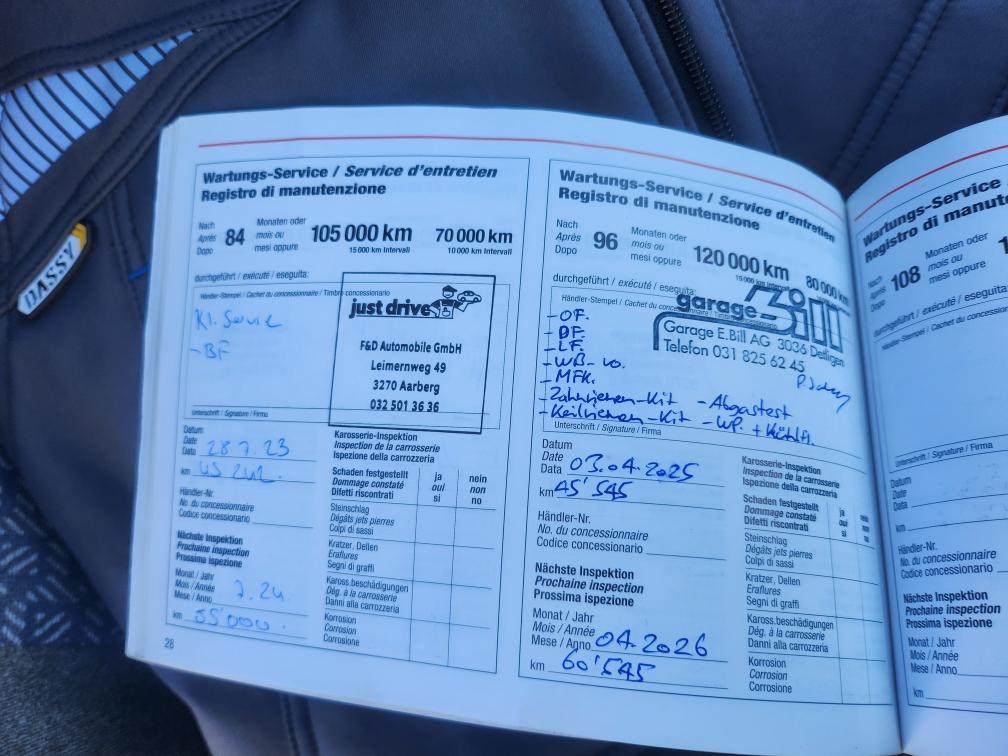 DASSY
Wartungs-Service / Service d'entretien
Registro di manutenzione
Nach
Après
Dopo
84
Monaten oder
mois ou
mesi oppure
105 000 km
15 000 km Intervall
70 000 km
10 000 km Intervall
durchgeführt / exécuté / eseguita:
Händler-Stempel / Cachet du concessionnaire / Timbro concessionario
Kl. Service
-BF
just drive
F&D Automobile GmbH
Leimernweg 49
3270 Aarberg
032 501 36 36
Unterschrift / Signature / Firma
Datum
Date
Data 28 7. 23
km 45 242
Händler-Nr.
No. du concessionnaire
Codice concessionario
Nächste Inspektion
Prochaine inspection
Prossima ispezione
Monat / Jahr
Mois / Année
Mese / Anno 7. 24
km 55'000.
Karosserie-Inspektion
Inspection de la carrosserie
Ispezione della carrozzeria
Schaden festgestellt
Dommage constaté
Difetti riscontrati
ja
oui
si
nein
non
no
Steinschlag
Dégâts jets pierres
Colpi di sassi
Kratzer, Dellen
Eraflures
Segni di graffi
Kaross.beschädigungen
Dég. à la carrosserie
Danni alla carrozzeria
Korrosion
Corrosion
Corrosione
28
Wartungs-Service / Service d'entretien
Registro di manutenzione
Nach
Après
Dopo
96
Monaten oder
mois ou
mesi oppure
120 000 km
15 000 km Intervall
80 000 km
durchgeführt / exécuté / eseguita:
Händler-Stempel / Cachet du concessionnaire / Timbro concessionario
garage Bill
Garage E.Bill AG 3036 Detligen
Telefon 031 825 62 45
-OF.
-BF.
-LF.
-WB-vo.
-MFK.
-Zahnriemen-Kit -Abgastest
-Keilriemen-Kit -WP. + Kühlfl.
Unterschrift / Signature / Firma
Datum
Date
Data 03.04.2025
km 45'545
Händler-Nr.
No. du concessionnaire
Codice concessionario
Nächste Inspektion
Prochaine inspection
Prossima ispezione
Monat / Jahr
Mois / Année
Mese / Anno 04.2026
km 60'545
Karosserie-Inspektion
Inspection de la carrosserie
Ispezione della carrozzeria
Schaden festgestellt
Dommage constaté
Difetti riscontrati
ja
oui
si
nein
non
no
Steinschlag
Dégâts jets pierres
Colpi di sassi
Kratzer, Dellen
Eraflures
Segni di graffi
Kaross.beschädigungen
Dég. à la carrosserie
Danni alla carrozzeria
Korrosion
Corrosion
Corrosione
Wartungs-Service
Registro di
Nach
Après
Dopo
108
Monaten oder
mois ou
mesi oppure
durchgeführt / exécuté / eseguita:
Händler-Stempel / Cachet du
Unterschrift / Signature / Firma
Datum
Date
Data
km
Händler-Nr.
No. du concessionnaire
Codice concessionario
Nächste Inspektion
Prochaine inspection
Prossima ispezione
Monat / Jahr
Mois / Année
Mese / Anno
km